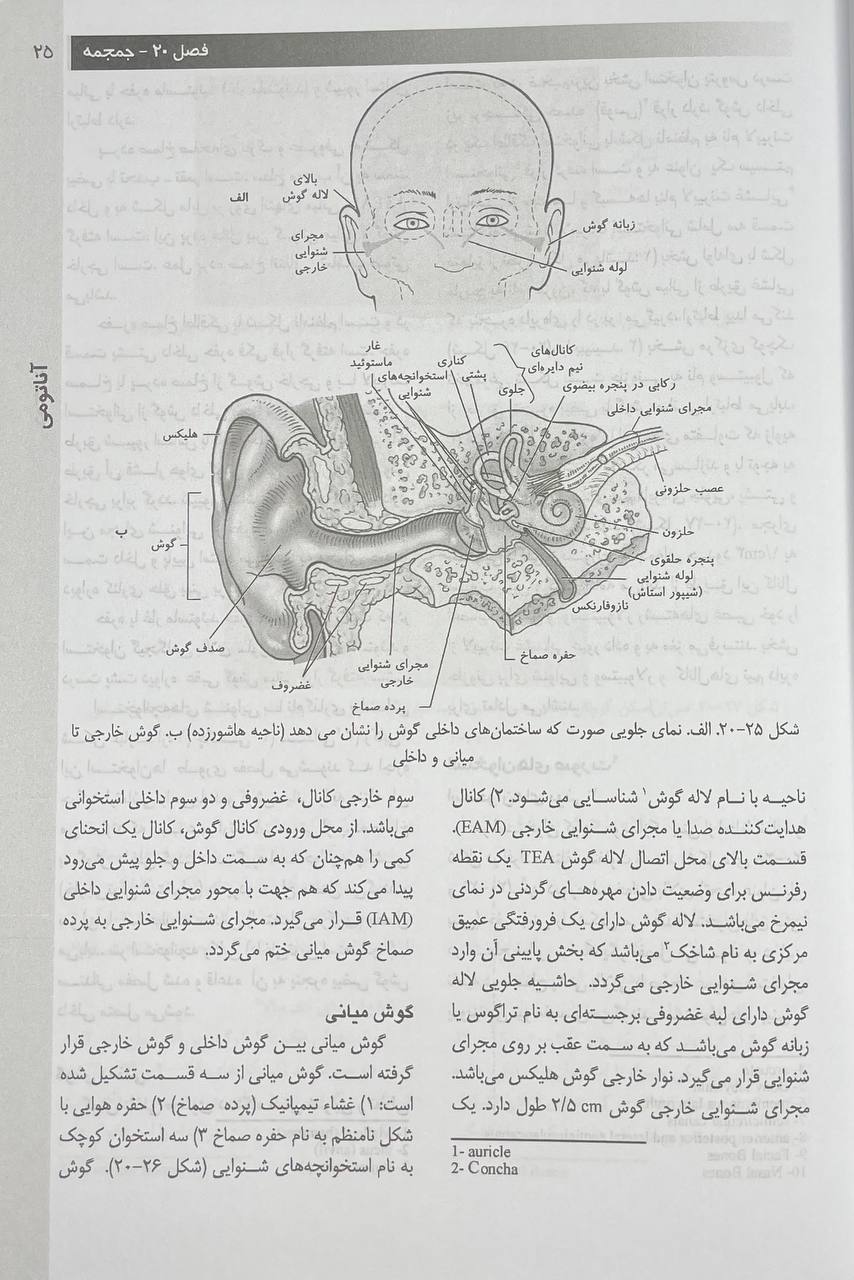 فصل ۲۰ - جمجمه
۲۵
آناتومی
بالای
لاله گوش
الف
مجرای
شنوایی
خارجی
زبانه گوش
لوله شنوایی
غار
ماستوئید
استخوانچه‌های
شنوایی
کناری
پشتی
جلوی
کانال‌های
نیم دایره‌ای
رکابی در پنجره بیضوی
مجرای شنوایی داخلی
هلیکس
عصب حلزونی
ب
گوش
حلزون
پنجره حلقوی
لوله شنوایی
(شیپور استاش)
نازوفارنکس
صدف گوش
غضروف
مجرای شنوایی
خارجی
پرده صماخ
حفره صماخ
شکل ۲۵-۲۰. الف. نمای جلویی صورت که ساختمان‌های داخلی گوش را نشان می دهد (ناحیه هاشورزده) ب. گوش خارجی تا
میانی و داخلی
ناحیه با نام لاله گوش۱ شناسایی می‌شود. ۲) کانال
هدایت‌کننده صدا یا مجرای شنوایی خارجی (EAM).
قسمت بالای محل اتصال لاله گوش TEA یک نقطه
رفرنس برای وضعیت دادن مهره‌های گردنی در نمای
نیمرخ می‌باشد. لاله گوش دارای یک فرورفتگی عمیق
مرکزی به نام شاخک۲ می‌باشد که بخش پایینی آن وارد
مجرای شنوایی خارجی می‌گردد. حاشیه جلویی لاله
گوش دارای لبه غضروفی برجسته‌ای به نام تراگوس یا
زبانه گوش می‌باشد که به سمت عقب بر روی مجرای
شنوایی قرار می‌گیرد. نوار خارجی گوش هلیکس می‌باشد.
مجرای شنوایی خارجی گوش ۲/۵ cm طول دارد. یک
1- auricle
2- Concha
سوم خارجی کانال، غضروفی و دو سوم داخلی استخوانی
می‌باشد. از محل ورودی کانال گوش، کانال یک انحنای
کمی را هم‌چنان که به سمت داخل و جلو پیش می‌رود
پیدا می‌کند که هم جهت با محور مجرای شنوایی داخلی
(IAM) قرار می‌گیرد. مجرای شنوایی خارجی به پرده
صماخ گوش میانی ختم می‌گردد.
گوش میانی
گوش میانی بین گوش داخلی و گوش خارجی قرار
گرفته است. گوش میانی از سه قسمت تشکیل شده
است: ۱) غشاء تیمپانیک (پرده صماخ) ۲) حفره هوایی با
شکل نامنظم به نام حفره صماخ ۳) سه استخوان کوچک
به نام استخوانچه‌های شنوایی (شکل ۲۶-۲۰). گوش